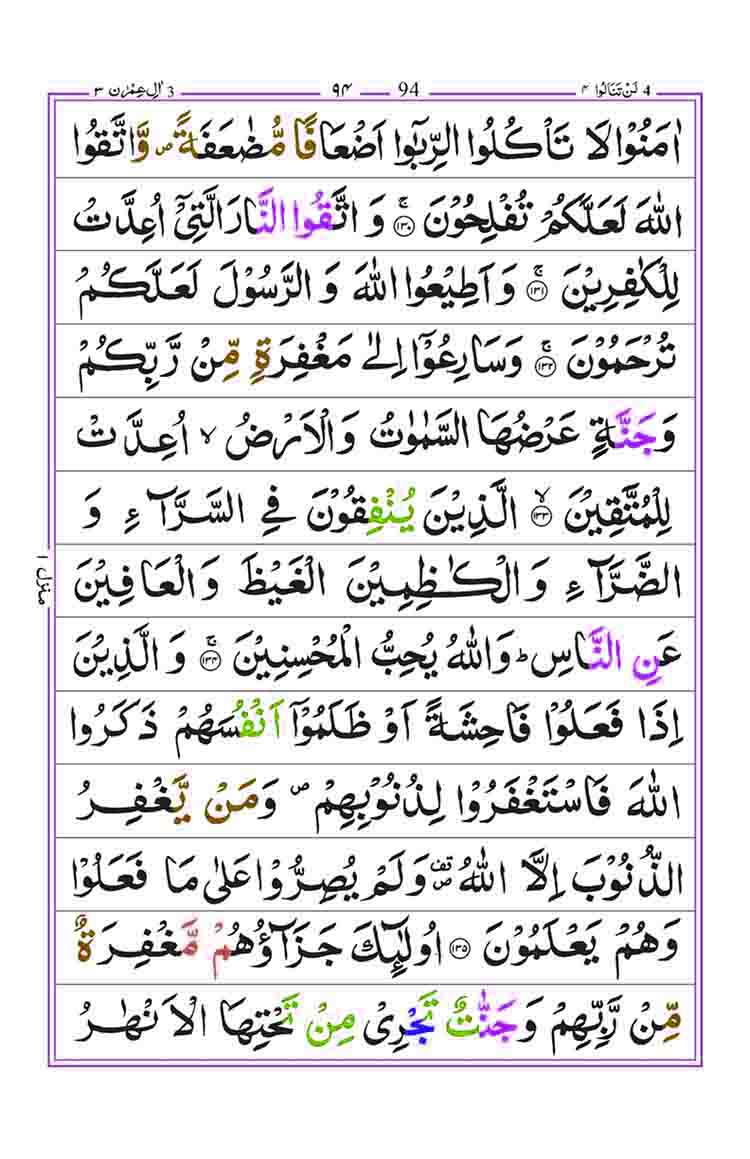 4 لَنْ تَنَالُوا ۴ 94 ۹۴ 3 اٰلِ عِمْرٰن ۳
اٰمَنُوْا لَا تَاْكُلُوا الرِّبٰۤوا اَضْعَافًا مُّضٰعَفَةً ۪ وَّاتَّقُوا
اللّٰهَ لَعَلَّكُمْ تُفْلِحُوْنَ ۚ ﴿۱۳۰﴾ وَ اتَّقُوا النَّارَ الَّتِیْۤ اُعِدَّتْ
لِلْكٰفِرِیْنَ ۚ ﴿۱۳۱﴾ وَ اَطِیْعُوا اللّٰهَ وَ الرَّسُوْلَ لَعَلَّكُمْ
تُرْحَمُوْنَ ۚ ﴿۱۳۲﴾ وَ سَارِعُوْۤا اِلٰی مَغْفِرَةٍ مِّنْ رَّبِّكُمْ
وَ جَنَّةٍ عَرْضُهَا السَّمٰوٰتُ وَ الْاَرْضُ ۙ اُعِدَّتْ
لِلْمُتَّقِیْنَ ۙ ﴿۱۳۳﴾ الَّذِیْنَ یُنْفِقُوْنَ فِی السَّرَّآءِ وَ
الضَّرَّآءِ وَ الْكٰظِمِیْنَ الْغَیْظَ وَ الْعَافِیْنَ
عَنِ النَّاسِ ؕ وَ اللّٰهُ یُحِبُّ الْمُحْسِنِیْنَ ۚ ﴿۱۳۴﴾ وَ الَّذِیْنَ
اِذَا فَعَلُوْا فَاحِشَةً اَوْ ظَلَمُوْۤا اَنْفُسَهُمْ ذَكَرُوا
اللّٰهَ فَاسْتَغْفَرُوْا لِذُنُوْبِهِمْ ۪ وَ مَنْ یَّغْفِرُ
الذُّنُوْبَ اِلَّا اللّٰهُ ۪۫ وَ لَمْ یُصِرُّوْا عَلٰی مَا فَعَلُوْا
وَ هُمْ یَعْلَمُوْنَ ﴿۱۳۵﴾ اُولٰٓىِٕكَ جَزَآؤُهُمْ مَّغْفِرَةٌ
مِّنْ رَّبِّهِمْ وَ جَنّٰتٌ تَجْرِیْ مِنْ تَحْتِهَا الْاَنْهٰرُ
منزل ۱